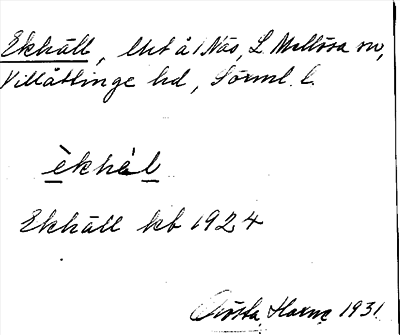 Ekhäll, lht å Näs, L. Mellösa sn,
Villåttinge hd, Sörml. l.
èkhèl
Ekhäll kb 1924
Gösta Harne 1931